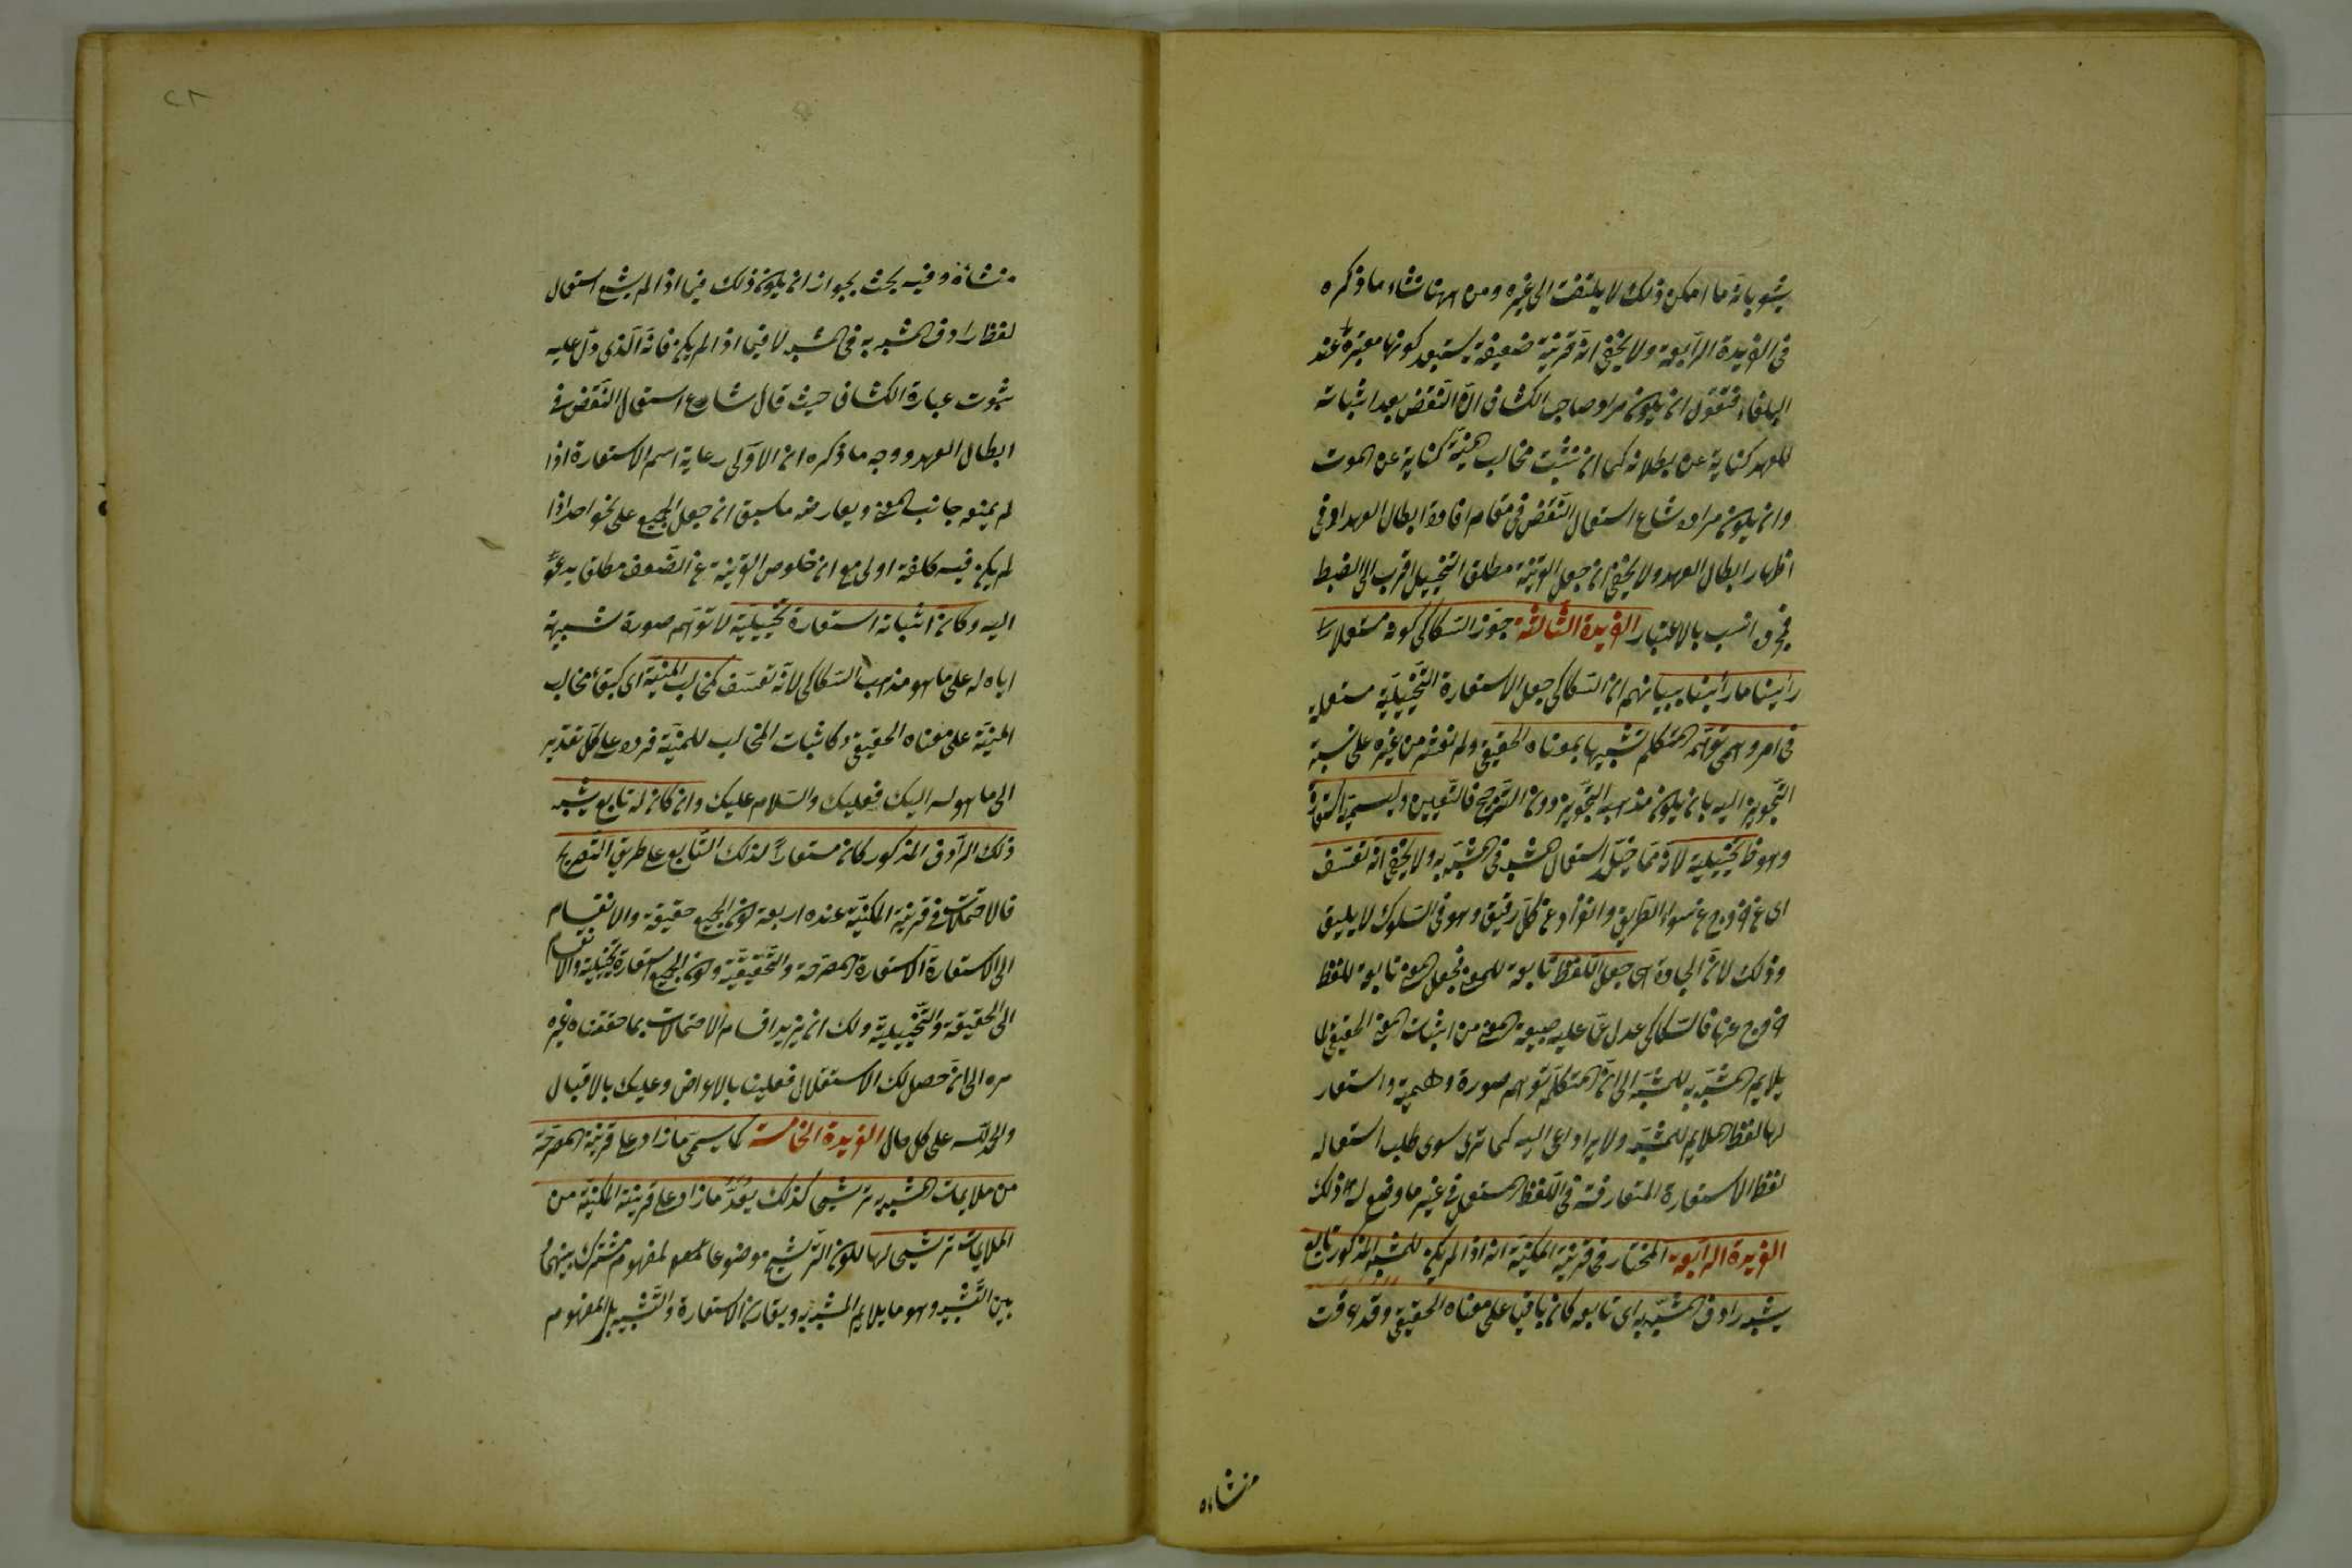 يشعر بانه ما امكن ذلك لا يلتفت الى غيره ومن ههنا نشاء ما ذكره
في الفريدة الرابعة ولا يخفى انه قرينة ضعيفة يستبعد كونها معتبرة عند
البلغاء فنقول ان يكون مراد صاحب الكشاف ان النقض بعد اثباته
للعهد كناية عن بطلانه كما ان نشبت مخالب المنية كناية عن الموت
وان يكون مراده شاع استعمال النقض في مقام افادة ابطال العهد او في
اظهار ابطال العهد ولا يخفى ان جعل القرينة مطلق التخييل اقرب الى الضبط
انسب بالاعتبار الفريدة الثالثة جوز السكاكي كونه مستعملا
رأينا ما رأينا ببيانهم ان السكاكي جعل الاستعارة التخييلية مستعملة
في امر وهمي توهمه المتكلم شبيها بمعناه الحقيقي ولم نعثر من غيره على نسبة
التجويز اليه بان يكون مذهبه التجويز دون الترجيح فالتعيين ويسميه استعارة
وهو تخييلية لانه مما خيل استعمال المشبه في المشبه به ولا يخفى انه تعسف
اي خروج عن سواء الطريق وهو في السلوك لا يليق
وذلك لان الجادة هي جعل اللفظ تابعة للمعنى فجعل المعنى تابعة للفظ
خروج عنها فالسكاكي عدل عن اثبات المعنى الحقيقي لما
يلايم المشبه به للمشبه الى ان المتكلم توهم صورة وهمية واستعار
لها لفظا ملايم للمشبه ولا يرا داعي اليه كما ترى سوى طلب استعماله
لفظ الاستعارة المتعارفة في اللفظ المستعمل في غير ما وضع له ذلك
الفريدة الرابعة المختار في قرينة المكنية انه اذا لم يكن للمشبه المذكور تابع
يشبه رادف المشبه به اي تابعه كان باقيا على معناه الحقيقي وقد عرفت
منشاءه
٢٨
منشاءه وفيه بحث بجواز ان يكون ذلك فيما اذا لم يشع استعمال
لفظ رادف المشبه به في المشبه لا فيما اذا لم يكن فانه الذي دل عليه
ثبوت عبارة الكشاف حيث قال شاع استعمال النقض في
ابطال العهد ووجه ما ذكره ان الاولى رعاية اسم الاستعارة اذا
لم يمنعه جانب المعنى ويعارضه ما سبق ان جعل الجميع على نحو واحد اذا
لم يكن فيه كلفة اولى مع ان خلوص القرينة عن الضعف مطلق يدعو
اليه وكان اثباته استعارة تخييلية لا توهم صورة شبيهة
اياه له على ما هو مذهب السكاكي لانه تعسف كمخالب المنية اي كبقاء مخالب
المنية على معناه الحقيقي وكاثبات المخالب للمنية فردت على كل تقدير
الى ما هو له اليك فعليك والسلام عليك وان كان له تابع يشبه
ذلك الرادف المذكور كان مستعارا لذلك التابع على طريق التصريح
فالاحتمالات في قرينة المكنية عنده اربعة كون الجميع حقيقة والانقسام
الى الاستعارة الاستعارة المصرحة والتحقيقية وكون الجميع استعارة تخييلية والانقسام
الى الحقيقة والتخييلية ولك ان تزيد اقسام الاحتمالات بما حققناه غير
مره الى ان حصل لك الاستقلال فعلينا بالاعراض وعليك بالاقبال
والحمد لله على كل حال الفريدة الخامسة كما يسمى ما زاد على قرينة المصرحة
من ملايمات المشبه به ترشيحا كذلك يعد ما زاد على قرينة المكنية من
الملايمات ترشيحا لها لكون الترشيح موضوعا لمفهوم مشترك بينهما و
بين التشبيه وهو ما يلايم المشبه به ويقارن الاستعارة والتشبيه بل المفهوم